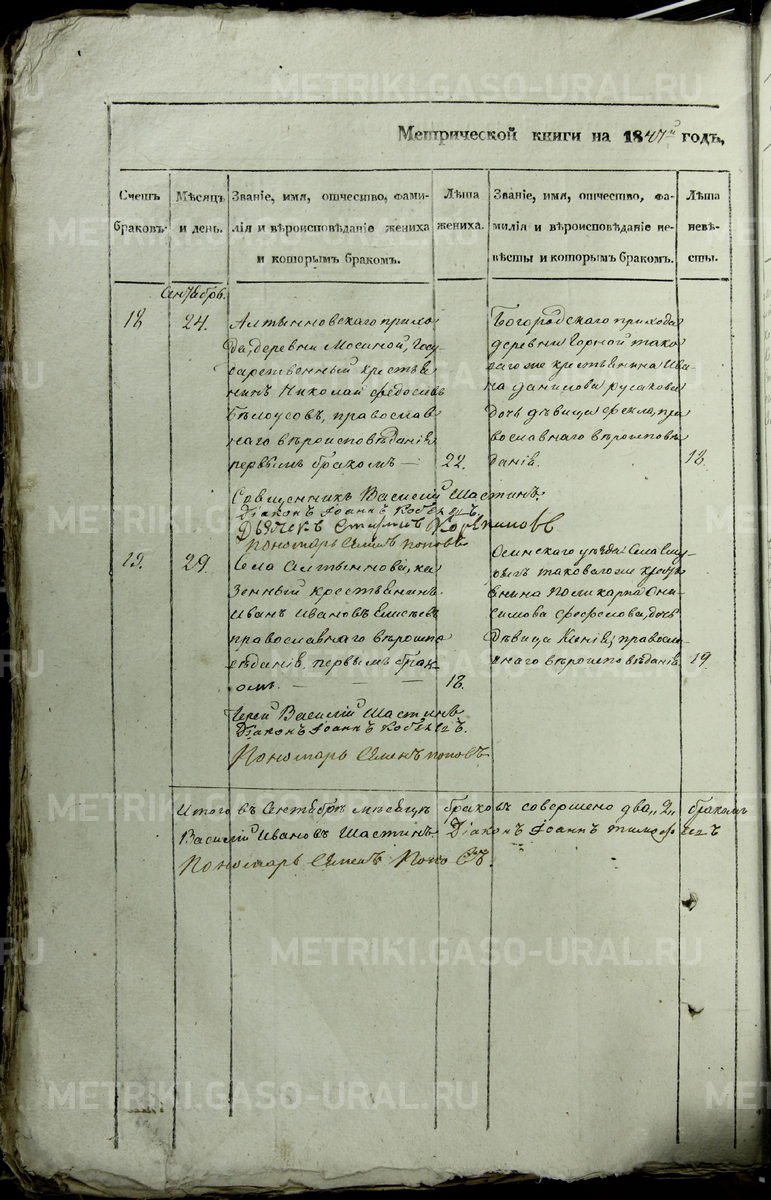 Метрической книги на 1847й годъ,
Счетъ браковъ.
Мѣсяцъ и день.
Званіе, имя, отчество, фами-
лія и вѣроисповѣданіе жениха
и которымъ бракомъ.
Лѣта
жениха.
Званіе, имя, отчество, фа-
милія и вѣроисповѣданіе не-
вѣсты и которымъ бракомъ.
Лѣта
невѣ-
сты.
Сентябрь.
18
24.
Алтынновскаго прихо
да, деревни Мосиной, Госу
дарственный крестья
нинъ Николай Федосѣевъ
Бѣлоусовъ, православ
наго вѣроисповѣданія
первымъ бракомъ —
22.
Богородскаго прихода
деревни Горной тако
ваго же крестьянина Ива-
на Данилова Русакова
дочь дѣвица Фекла, пра
вославнаго вѣроисповѣ
данія.
18.
Священникъ Василій Шастинъ
Діаконъ Іоаннъ
Дьячекъ
Пономарь Семенъ Поповъ
19.
29.
Села Алтыннова, ка
зенный крестьянинъ
Иванъ Ивановъ Елисѣевъ
православнаго вѣроиспо
вѣданія, первымъ брак
омъ. — — — —
18.
Осинскаго уѣзда Села
таковаго же кресть
янина Поликарпа Они
симова дочь
дѣвица Ксенія; правосла
внаго вѣроисповѣданія
19.
Іерей Василій Шастинъ
Діаконъ Іоаннъ
Пономарь Семенъ Поповъ
Итого въ Сентябрѣ мѣсяцѣ браковъ совершено два „2„
Василій Ивановъ Шастинъ Діаконъ Іоаннъ
Пономарь Семенъ Поповъ.
METRIKI.GASO-URAL.RU